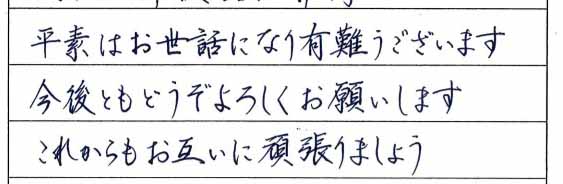 平素はお世話になり有難うございます
今後ともどうぞよろしくお願いします
これからもお互いに頑張りましょう